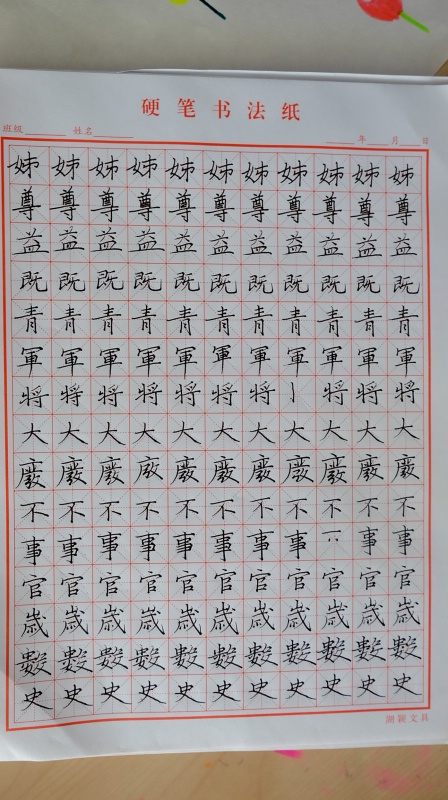 硬笔书法纸
班级 姓名 年 月 日
姊姊姊姊姊姊姊姊姊姊姊
尊尊尊尊尊尊尊尊尊尊尊
益益益益益益益益益益益
既既既既既既既既既既既
青青青青青青青青青青青
軍軍軍軍軍軍軍軍軍軍軍
将将将将将将将将将将
大大大大大大大大大大大
不不不不不不不不不不不
事事事事事事事事事事
官官官官官官官官官官官
嵗嵗嵗嵗嵗嵗嵗嵗嵗嵗嵗
數數數數數數數數數數數
史史史史史史史史史史史
测颖文具